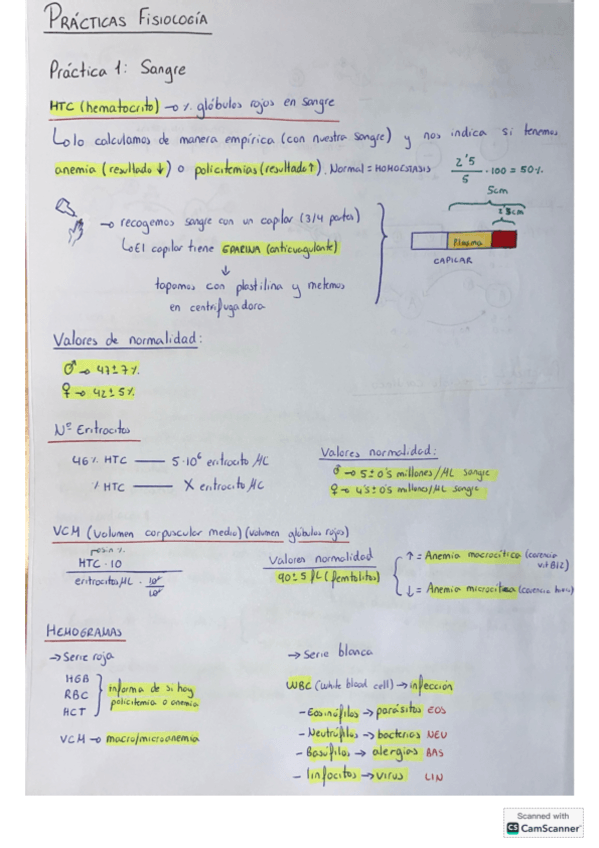 PRÁCTICAS FISIOLOGÍA
Práctica 1: Sangre
HTC (hematocrito) → % glóbulos rojos en sangre
↳ lo calculamos de manera empírica (con nuestra sangre) y nos indica si tenemos
anemia (resultado ↓) o policitemias (resultado ↑). Normal = HOMOESTASIS
2'5/5 · 100 = 50%
5cm
2'5cm
→ recogemos sangre con un capilar (3/4 partes)
↳ El capilar tiene EPARINA (anticoagulante)
↓
tapamos con plastilina y metemos
en centrifugadora
Plasma
CAPILAR
Valores de normalidad:
♂ → 47±7%
♀ → 42±5%
Nº Eritrocitos
46% HTC — 5·10⁶ eritrocito µL
% HTC — X eritrocito µL
Valores normalidad:
♂ → 5±0'5 millones/µL sangre
♀ → 4'5±0'5 millones/µL sangre
VCM (Volumen corpuscular medio) (volumen glóbulos rojos)
sin %
HTC · 10
eritrocitos µL ·
Valores normalidad
90±5 fL (femtolitros)
↑ = Anemia macrocítica (carencia
vit B12)
↓ = Anemia microcítica (carencia hierro)
HEMOGRAMAS
→ Serie roja
HGB
RBC
HCT
informa de si hay
policitemia o anemia
VCM → macro/microanemia
→ Serie blanca
WBC (White blood cell) → infección
- Eosinófilos → parásitos EOS
- Neutrófilos → bacterias NEU
- Basófilos → alergias BAS
- linfocitos → virus LIN
Scanned with
CS CamScanner